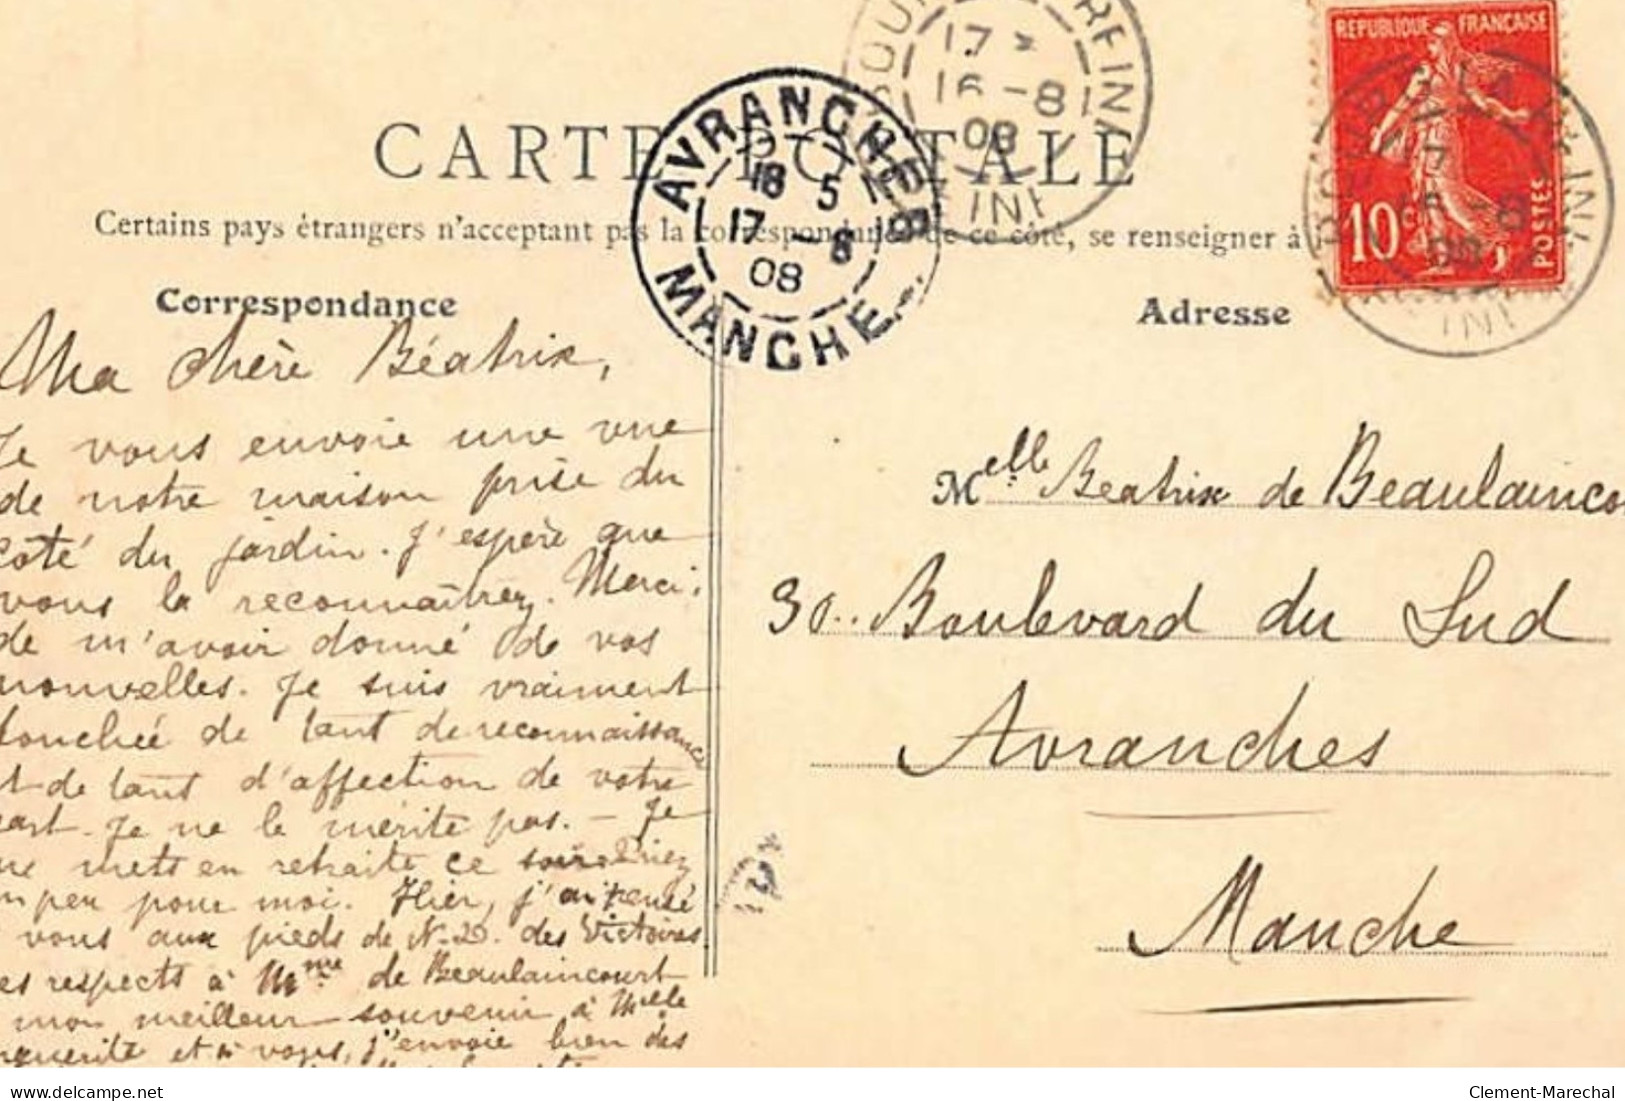 REPUBLIQUE FRANÇAISE
10c
POSTES
17
16 - 8
08
CARTE POSTALE
AVRANCHES
18 5
17 - 8
08
MANCHE
Certains pays étrangers n'acceptant pas la correspondance de ce côté, se renseigner à
Correspondance
Adresse
Ma chère Béatrix,
Je vous envoie une vue
de notre maison prise du
côté du jardin. J'espère que
vous la reconnaîtrez. Merci
de m'avoir donné de vos
nouvelles. Je suis vraiment
touchée de tant de reconnaissance
et de tant d'affection de votre
part. Je ne le mérite pas. – Je
me mets en retraite ce soir. Priez
un peu pour moi. Hier, j'ai pensé
vous aux pieds de N.D. des Victoires.
mes respects à Mme de Beaulaincourt
mon meilleur souvenir à Melle
et à vous, j'envoie bien des
Melle Béatrix de Beaulaincou
30. Boulevard du Sud
Avranches
Manche
www.delcampe.net
Clement-Marechal